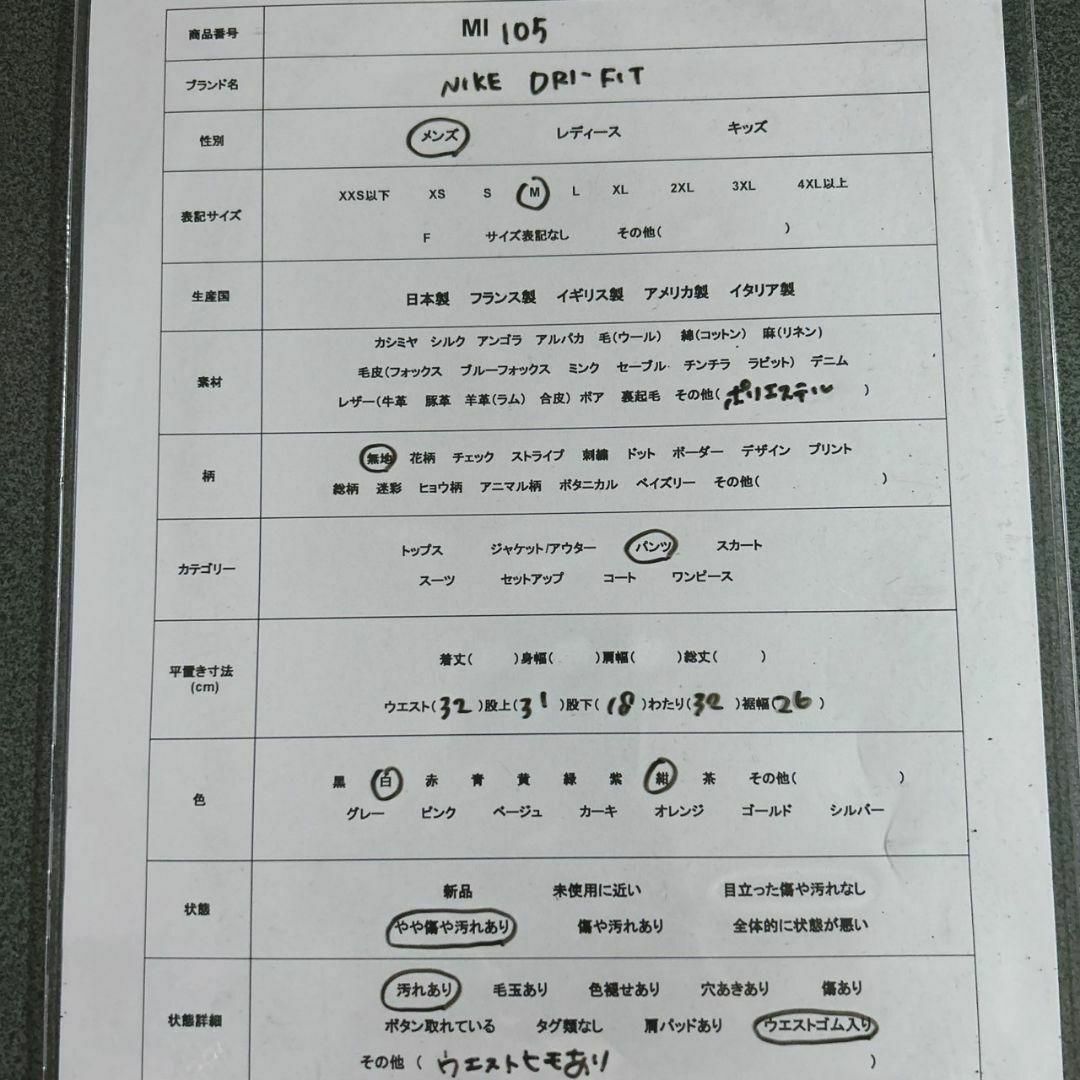 商品番号 MI 105
ブランド名 NIKE DRI-FIT
性別 メンズ レディース キッズ
表記サイズ XXS以下 XS S M L XL 2XL 3XL 4XL以上
F サイズ表記なし その他( )
生産国 日本製 フランス製 イギリス製 アメリカ製 イタリア製
素材 カシミヤ シルク アンゴラ アルパカ 毛(ウール) 綿(コットン) 麻(リネン)
毛皮(フォックス ブルーフォックス ミンク セーブル チンチラ ラビット) デニム
レザー(牛革 豚革 羊革(ラム) 合皮) ボア 裏起毛 その他(ポリエステル )
柄 無地 花柄 チェック ストライプ 刺繍 ドット ボーダー デザイン プリント
総柄 迷彩 ヒョウ柄 アニマル柄 ボタニカル ペイズリー その他( )
カテゴリー トップス ジャケット/アウター パンツ スカート
スーツ セットアップ コート ワンピース
平置き寸法 着丈( )身幅( )肩幅( )総丈( )
(cm) ウエスト(32)股上(31)股下(18)わたり(32)裾幅(26)
色 黒 白 赤 青 黄 緑 紫 紺 茶 その他( )
グレー ピンク ベージュ カーキ オレンジ ゴールド シルバー
状態 新品 未使用に近い 目立った傷や汚れなし
やや傷や汚れあり 傷や汚れあり 全体的に状態が悪い
状態詳細 汚れあり 毛玉あり 色褪せあり 穴あきあり 傷あり
ボタン取れている タグ類なし 肩パッドあり ウエストゴム入り
その他 ( ウエストヒモあり )